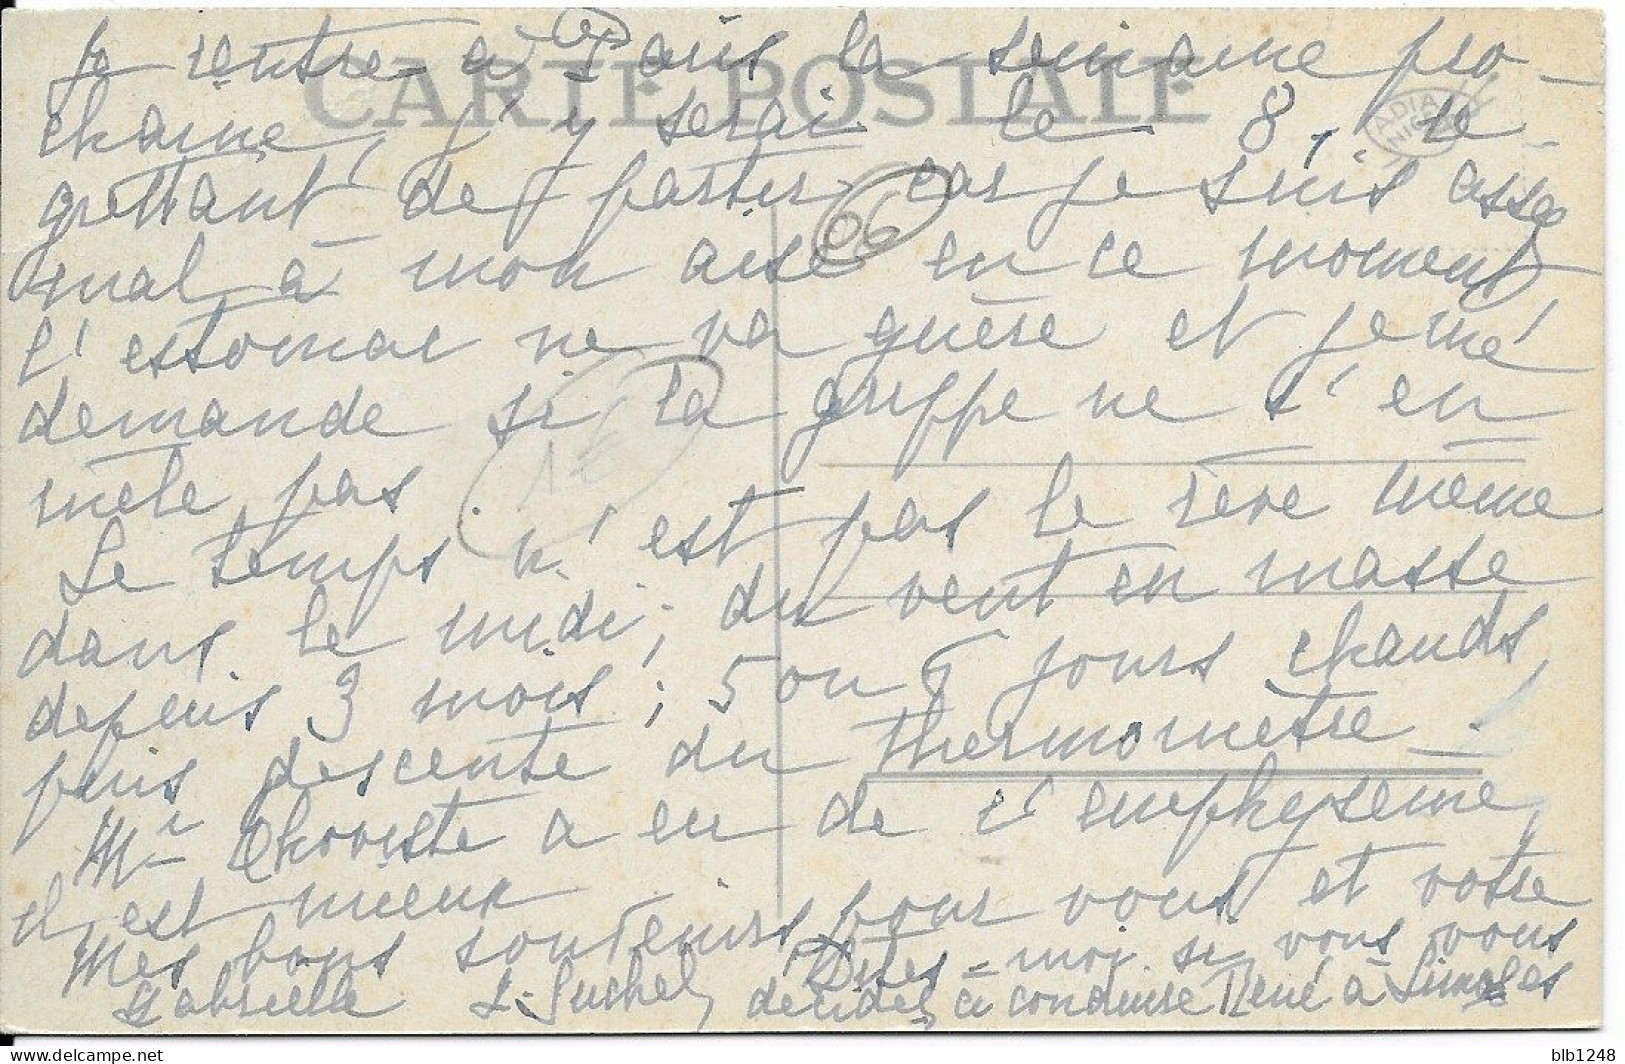 CARTE POSTALE
Je rentre à Paris la semaine pro-
chaine, j'y serai le 8, re-
grettant de partir car je suis assez
mal à mon aise en ce moment
l'estomac ne va guère et je me
demande si la grippe ne s'en
mêle pas.
Le temps n'est pas le rêve même
dans le midi; du vent en masse
depuis 3 mois; 5 ou 6 jours chauds,
puis descente du thermomètre.
Mr a eu de l'emphysème,
il est mieux
Mes bons souvenirs pour vous et votre
Gabrielle
Dites-moi si vous vous
décidez à conduire René à
06
16